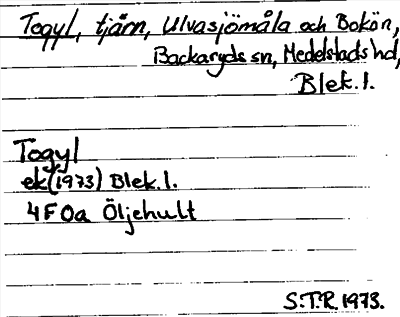 Togyl, tjärn, Ulvasjömåla och Bokön,
Backaryds sn, Medelstads hd,
Blek. l.
Togyl
ek(1973) Blek. l.
4F 0a Öljehult
S.T.R. 1973.